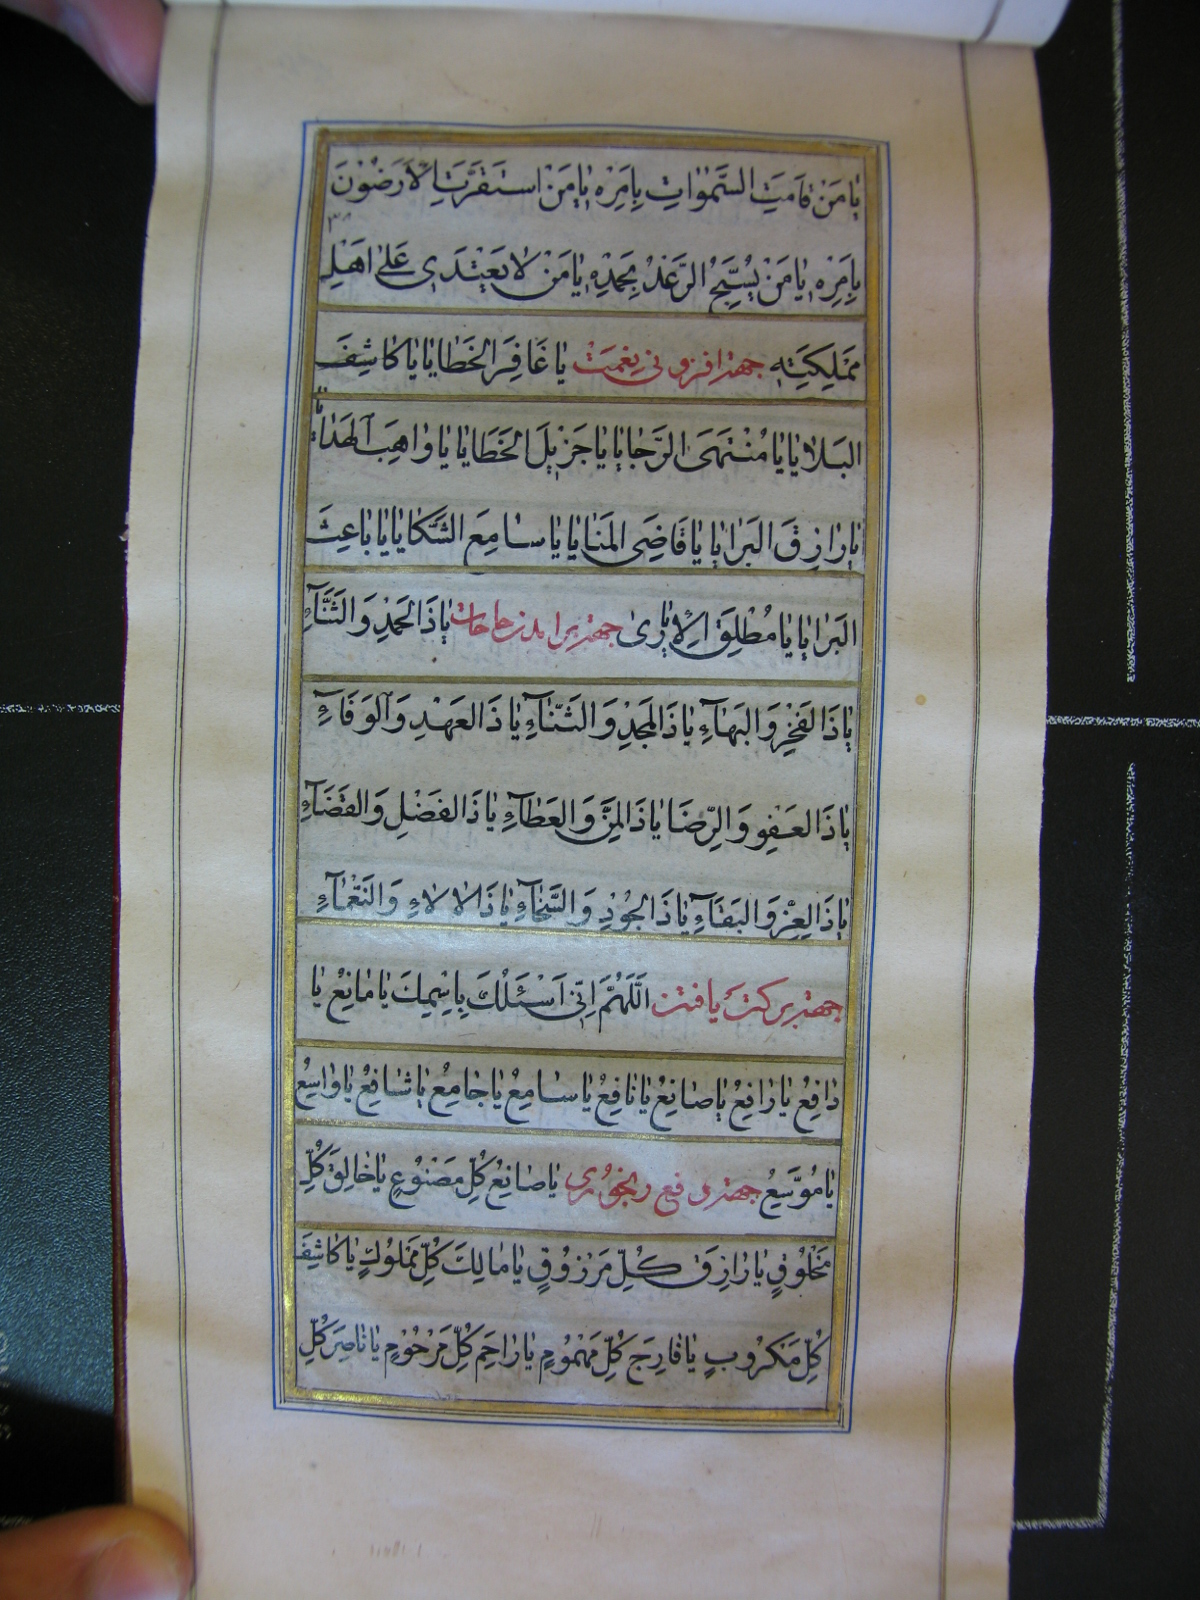 يا مَنْ قامَتِ السَّمٰواتِ بِاَمِرْهِ يا مَنْ اسْتَقَرَّتِ الْاَرَضُوْنَ
بِاَمِرْهِ يا مَنْ يُسَبِّحُ الرَّعْدُ بِحَمْدِهِ يا مَنْ لا يَعْتَدَى عَلىٰ اَهْلِ
مَمْلِكَتِهِ جهة افزونی نعمت يا غافِرَ الْخَطايا يا كاشِفَ
الْبَلايا يا مُنْتَهَى الرَّجايا يا جَزِيلَ الْخَطايا يا واهِبَ الْهَدايا
يا رازِقَ الْبَرايا يا قاضِىَ الْمَنايا يا سامِعَ الشَّكايا يا باعِثَ
الْبَرايا يا مُطْلِقَ الْاُسارىٰ جهة برامدن حاجات يا ذَا الْحَمْدِ وَ الثَّنآءِ
يا ذَا الْفَخْرِ وَ الْبَهآءِ يا ذَا الْمَجْدِ وَ الثَّنآءِ يا ذَا الْعَهْدِ وَ الْوَفآءِ
يا ذَا الْعَفْوِ وَ الرِّضَا يا ذَا الْمَنِّ وَ الْعَطآءِ يا ذَا الْفَضْلِ وَ الْقَضَآءِ
يا ذَا الْعِزِّ وَ الْبَقآءِ يا ذَا الْجُوْدِ وَ السَّخآءِ يا ذَا الْالاءِ وَ النَّعْمآءِ
جهة بركت يافتن اَللّهُمَّ اِنّى اَسْئَلُكَ بِاسْمِكَ يا مانِعُ يا
دافِعُ يا رافِعُ يا صانِعُ يا نافِعُ يا سامِعُ يا جامِعُ يا شافِعُ يا واسِعُ
يا مُوَسِّعُ جهة دفع رنجوری يا صانِعَ كُلِّ مَصْنُوعٍ يا خالِقَ كُلِّ
مَخْلُوقٍ يا رازِقَ كُلِّ مَرْزُوْقٍ يا مالِكَ كُلِّ مَمْلُوكٍ يا كاشِفَ
كُلِّ مَكْرُوبٍ يا فارِجَ كُلِّ مَهْمُومٍ يا راحِمَ كُلِّ مَرْحُوْمٍ يا ناصِرَ كُلِّ